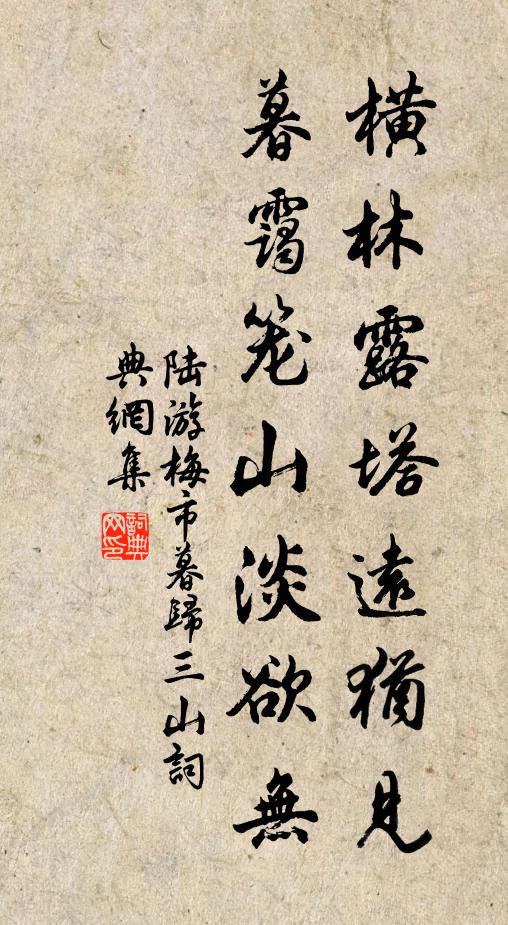 橫林露塔遠猶見
暮靄笼山淡欲無
陆游梅市暮歸三山詞
典網集
詞典
网印